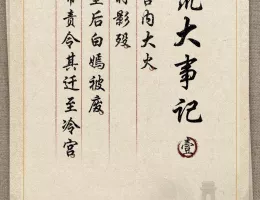 大事记
壹
内大火
影殁
后白嫣被废
责令其迁至冷宫